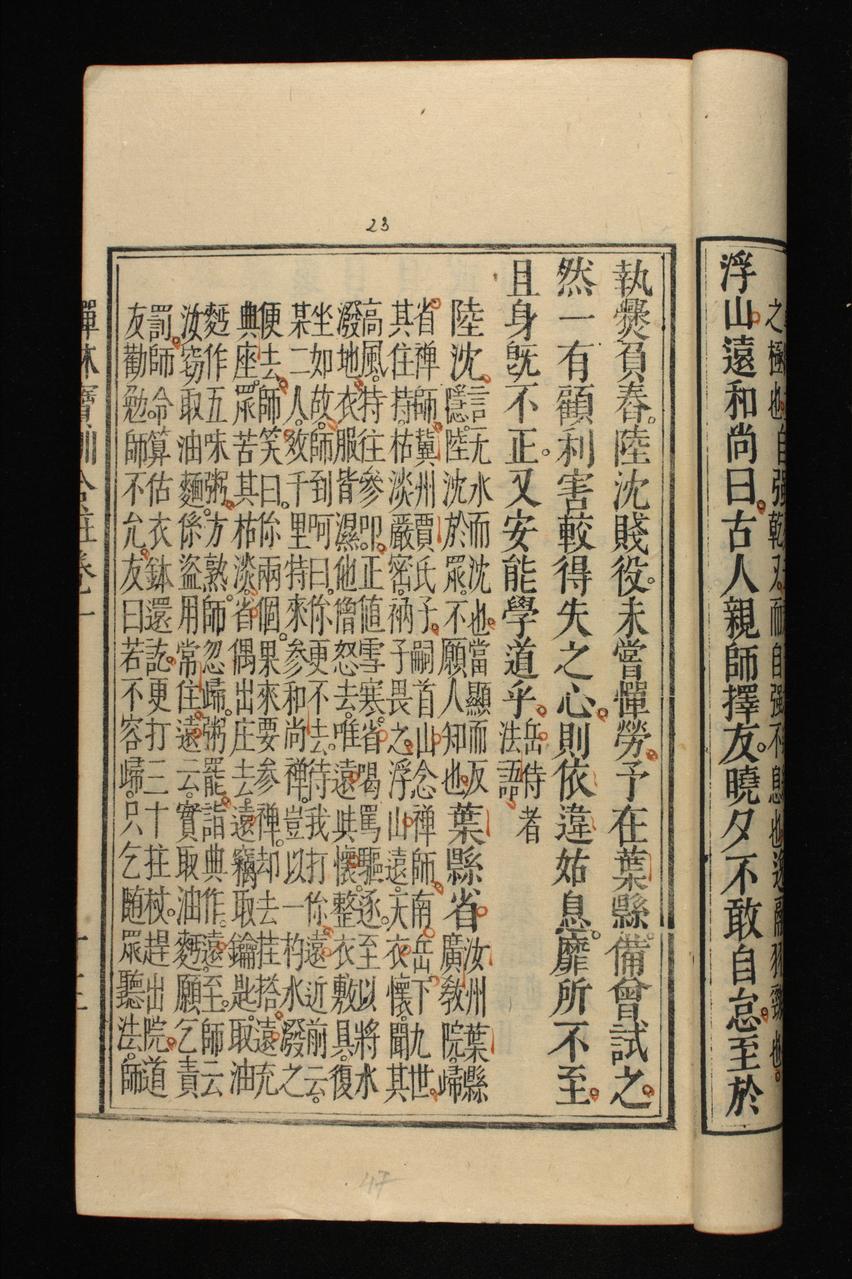 之極也自強
而自強不息也
浮山遠和尚曰古人親師擇友曉夕不敢自怠至於
23
執爨負舂陸沈賤役未嘗憚勞予在葉縣備曾試之
然一有顧利害較得失之心則依違姑息靡所不至
且身旣不正又安能學道乎岳侍者法語
陸沈言无水而沈也當顯而反
隱陸沈於眾不願人知也葉縣省汝州葉縣
廣教院歸
省禪師冀州賈氏子嗣首山念禪師南岳下九世
其住持枯淡嚴密衲子畏之浮山遠天衣懷聞其
高風特往參叩正值雪寒省喝罵驅逐至以將水
潑地衣服皆濕他僧怒去唯遠與懷整衣敷具復
坐如故師到呵曰你更不去待我打你遠近前云
某二人數千里特來參和尚禪豈以一杓水潑之
便去師笑曰你兩個果來要參禪却去挂搭遠充
典座眾苦其枯淡省偶出庄去遠竊取鑰匙取油
麪作五味粥方熟師忽歸粥罷詣典作遠至師云
汝竊取油麵係盜用常住遠云實取油麪願乞責
罰師令算估衣鉢還訖更打三十拄杖趕出院道
友勸勉師不允友曰若不容歸只乞随眾聽法師
禪林寶訓合註卷一
47